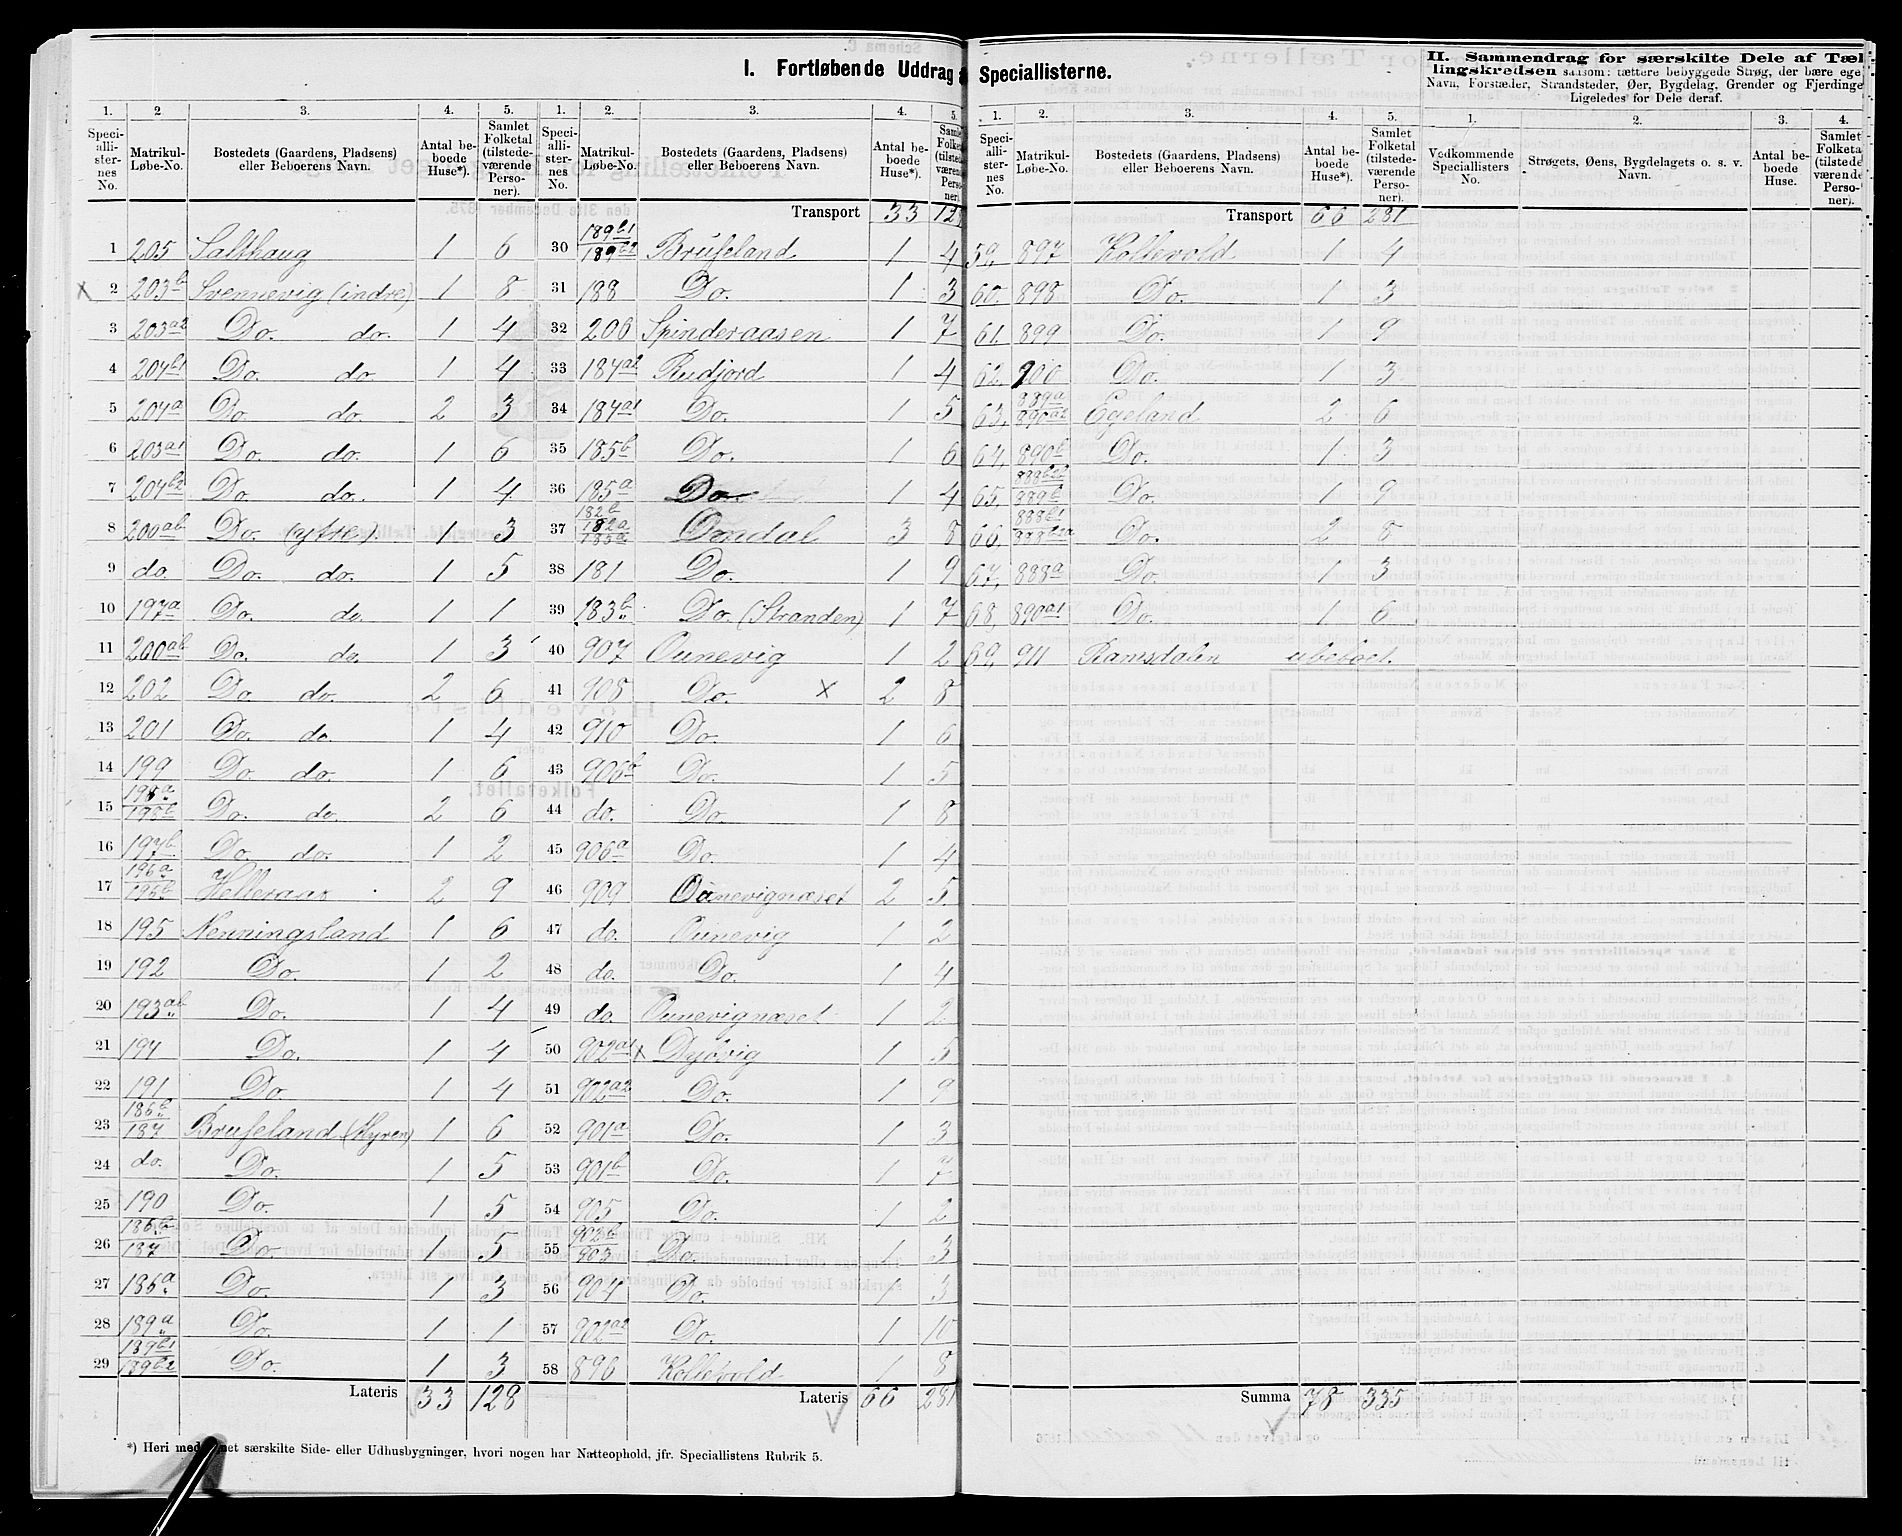 I. Fortløbende Uddrag
Speciallisterne.
II. Sammendrag for særskilte Dele af Tæl
lingskredsen saasom: tættere bebyggede Strøg, der bære ege
Navn, Forstæder, Strandsteder, Øer, Bygdelag, Grender og Fjerdinge
Ligeledes for Dele deraf.
1. 2 3. 4. 5. 1. 2. 3. 4. 5.
Speci-allister-nes No. Matrikul-Løbe-No. Bostedets (Gaardens, Pladsens) eller Beboerens Navn. Antal be-boede Huse*). Samlet Folketal (tilstede-værende Perso-ner).
Transport 33
1 205 Salthaug 1 6
2 203b Svennevig (indre) 1 8
3 203a2 Do. do. 1 4
4 204b1 Do. do. 1 4
5 204a Do. do. 2 3
6 203a1 Do. do. 1 6
7 204b2 Do. do. 1 4
8 200ab Do. (ytre) 1 3
9 do. Do. do. 1 5
10 197a Do. do. 1 1
11 200ab Do. do. 1 3
12 202 Do. do. 2 6
13 201 Do. do. 1 4
14 199 Do. do. 1 6
15 198a 198b Do. do. 2 6
16 197b Do. do. 1 2
17 196a 196b Helleraas 2 9
18 195 Nenningsland 1 6
19 192 Do. 1 2
20 193ab Do. 1 4
21 194 Do. 1 4
22 191 Do. 1 4
23 186b 187 Bruseland (Myren) 1 6
24 do. Do. 1 5
25 190 Do. 1 5
26 186b 187 Do. 1 5
27 186a Do. 1 3
28 189a Do. 1 1
29 189b1 189b2 Do. 1 3
Lateris 33 128
30 189b1 189b2 Bruseland 1 4
31 188 Do. 1 3
32 206 Spinderaasen 1 7
33 184a2 Rudjord 1 4
34 184a1 Do. 1 5
35 185b Do. 1 6
36 185a Do. 1 4
37 182b 182a 185a Omdal 3 8
38 181 Do. 1 9
39 183b Do. (Stranden) 1 7
40 907 Ounevig 1 2
41 908 Do. X 2 8
42 910 Do. 1 6
43 906b Do. 1 5
44 do. Do. 1 8
45 906a Do. 1 4
46 909 Ounevignæset 2 5
47 do. Ounevig 1 2
48 do. Do. 1 4
49 do. Ounevignæset 1 2
50 902a1 X Dyøvig 1 5
51 902a2 Do. 1 9
52 901a Do. 1 3
53 901b Do. 1 7
54 905 Do. 1 2
55 902b 903 Do. 1 3
56 904 Do. 1 3
57 902a2 Do. 1 10
58 896 Kollevold 1 8
Lateris 66 281
*) Heri med net særskilte Side- eller Udhusbygninger, hvori nogen har Natteophold, jfr. Speciallistens Rubrik 5.
1. 2. 3. 4. 5. 1. 2. 3. 4.
Speci-allister-nes No. Matrikul-Løbe-No. Bostedets (Gaardens, Pladsens) eller Beboerens Navn. Antal be-boede Huse*). Samlet Folketal (tilstede-værende Perso-ner). Vedkommende Speciallisters No. Strøgets, Øens, Bygdelagets o. s. v. Navn. Antal be-boede Huse. Samlet Folketa (tilstede værende Perso-ner).
Transport 66 281
59, 897 Kollevold 1 4
60. 898 Do. 1 3
61. 899 Do. 1 9
62. 900 Do. 1 3
63. 889a 890a2 Egeland 2 6
64. 890b Do. 1 3
65. 889b Do. 1 9
66. 888b1 Do. 2 8
67, 888a Do. 1 3
68, 890a1 Do. 1 6
69, 911 Ramsdalen ubeboet.
Summa 78 335